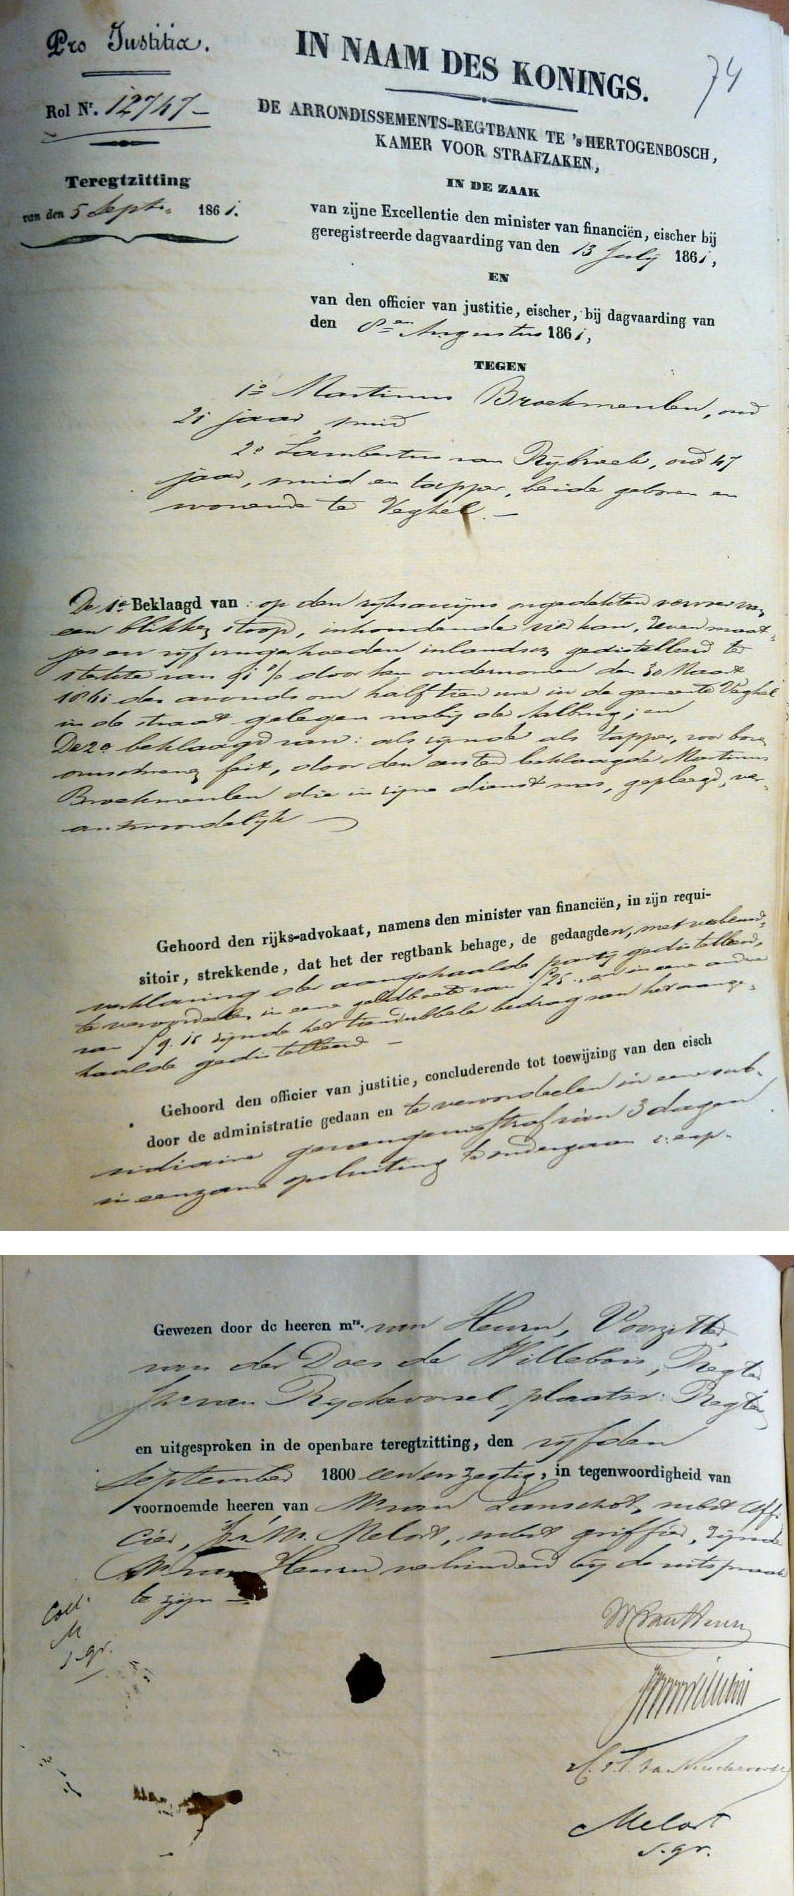 Pro Justitia.
Rol Nr. 12747
Teregtzitting
van den 5 Sept. 1861.
74
IN NAAM DES KONINGS.
DE ARRONDISSEMENTS-REGTBANK TE 's HERTOGENBOSCH,
KAMER VOOR STRAFZAKEN,
IN DE ZAAK
van zijne Excellentie den minister van financiën, eischer bij
geregistreerde dagvaarding van den 13 July 1861,
EN
van den officier van justitie, eischer, bij dagvaarding van
den 8en Augustus 1861,
TEGEN
1o Martinus Broekmeulen, oud
21 jaar, smid
2o Lambertus van Rijbroek, oud 47
jaar, smid en tapper, beide geboren en
wonende te Veghel.
De 1e Beklaagd van: op den rijksaccijns ongedekten vervoer van
een blikken stoop, inhoudende vier kan, zeven maat-
jes en vijf vingerhoeden inlandsch gedistelleerd ter
sterkte van 91 % door hem ondernomen den 30 Maart
1861 des avonds om half tien ure in de gemeente Veghel
in de straat gelegen nabij de valbrug; en
De 2e beklaagd van: als zijnde als tapper, voor boven
omschreven feit, door den eersten beklaagde Martinus
Broekmeulen die in zijne dienst was, gepleegd, ver-
antwoordelijk
Gehoord den rijks-advokaat, namens den minister van financiën, in zijn requi-
sitoir, strekkende, dat het der regtbank behage, de gedaagden, met verbeurd-
verklaring der aangehaalde party gedistelleerd,
te veroordeelen in eene geldboete van f 25. en in eene andere
van f 9.15 zijnde het tiendubbele bedrag van het aange-
haalde gedistelleerd
Gehoord den officier van justitie, concluderende tot toewijzing van den eisch
door de administratie gedaan en te veroordeelen in eene sub-
sidiaire gevangenisstraf van 3 dagen
in eenzame opsluiting te ondergaan
Gewezen door de heeren mrs. van Heurn, Voorzitter
van der Does de Willebois, Regter
Jhr. van Rijckevorsel, plaatsv. Regter,
en uitgesproken in de openbare teregtzitting, den vijfden
September 1800 eenenzestig, in tegenwoordigheid van
voornoemde heeren van Mr van Lanschot, subst Offi-
cier, Mr. Melort, subst griffier, zijnde
Mr van Heurn verhinderd bij de uitspraak
te zijn
Coll.
M
s. gr.
van Heurn
Willebois
van Rijckevorsel
Melort
s. gr.